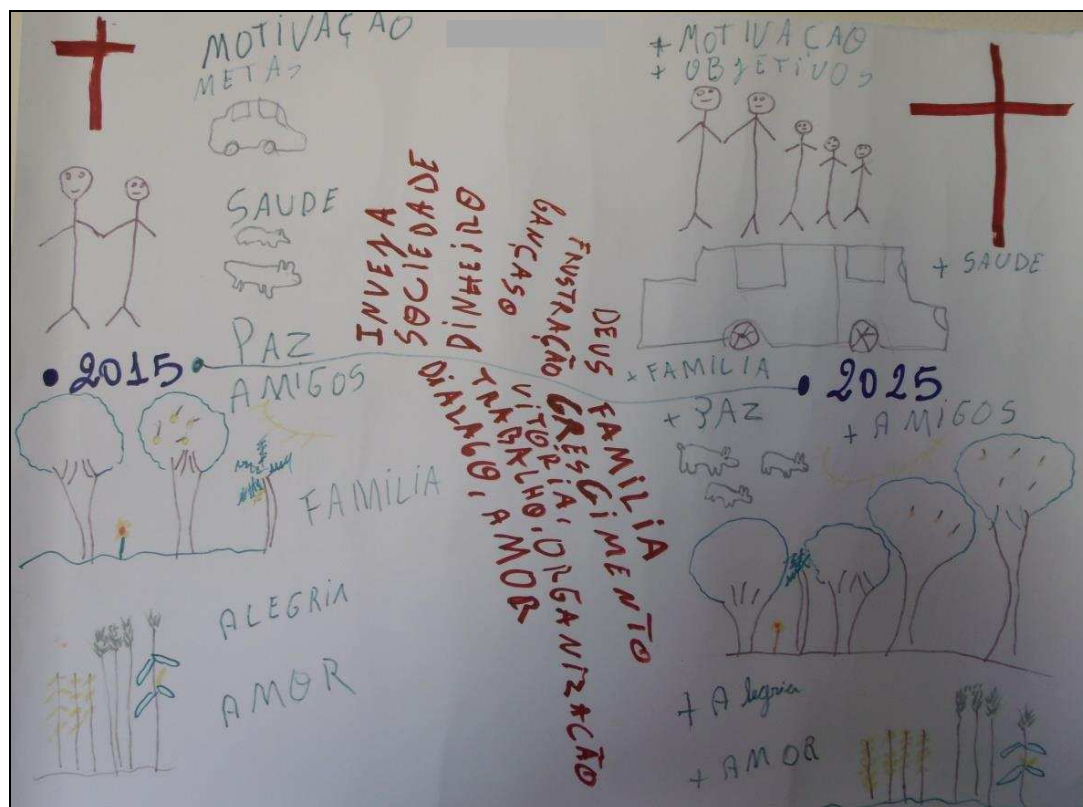 MOTIVAÇÃO
METAS
SAUDE
PAZ
2015
AMIGOS
FAMILIA
ALEGRIA
AMOR
INVEJA
SOCIEDADE
DINHEIRO
CANÇASO
FRUSTRAÇÃO
DEUS
DIALAGO, AMOR
TRABALHO,
VITORIA, ORGANIZAÇÃO
CRESCIMENTO
FAMILIA
+ MOTIVAÇAO
+ OBJETIVOS
+ SAUDE
+ FAMILIA
2025
+ PAZ
+ AMIGOS
+ Alegria
+ AMOR